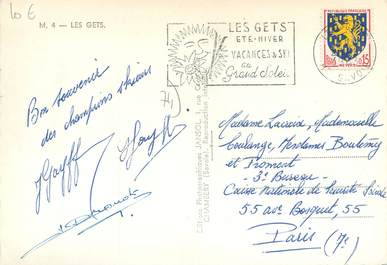 10 €
M. 4 — LES GETS.
LES GETS
ETE-HIVER
VACANCES & SKI
au
Grand Soleil
REPUBLIQUE FRANÇAISE
0,15
74
CHAMBERY (Savoie)
Bon souvenir
des champions skieurs
Madame Lacroix, Mademoiselle
Coulange, Mesdames Boutemy
et Froment
- 3e Bureau -
Caisse Nationale de Sécurité Sociale
55 ave Bosquet, 55
Paris (7e)